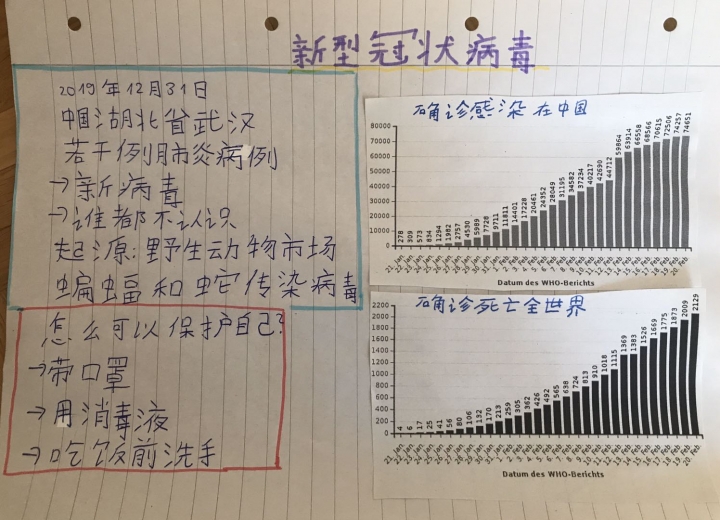 新型冠状病毒
2019年12月31日
中国湖北省武汉
若干例肺炎病例
→新病毒
→谁都不认识
起源:野生动物市场
蝙蝠和蛇传染病毒
怎么可以保护自己?
→带口罩
→用消毒液
→吃饭前洗手
确诊感染在中国
80000
70000
60000
50000
40000
30000
20000
10000
0
278 309 573 834 1294 1982 2757 4530 5989 7728 9711 11811 14401 17228 20461 24352 28049 31195 34582 37234 40217 42690 44712 59864 63914 66558 68566 70615 72506 74257 74651
21. Jan 22. Jan 23. Jan 24. Jan 25. Jan 26. Jan 27. Jan 28. Jan 29. Jan 30. Jan 31. Jan 1. Feb 2. Feb 3. Feb 4. Feb 5. Feb 6. Feb 7. Feb 8. Feb 9. Feb 10. Feb 11. Feb 12. Feb 13. Feb 14. Feb 15. Feb 16. Feb 17. Feb 18. Feb 19. Feb 20. Feb
Datum des WHO-Berichts
确诊死亡全世界
2200
2000
1800
1600
1400
1200
1000
800
600
400
200
0
4 6 17 25 41 56 80 106 132 170 213 259 305 362 426 492 565 638 724 813 910 1018 1115 1369 1383 1526 1669 1775 1873 2009 2129
21. Jan 22. Jan 23. Jan 24. Jan 25. Jan 26. Jan 27. Jan 28. Jan 29. Jan 30. Jan 31. Jan 1. Feb 2. Feb 3. Feb 4. Feb 5. Feb 6. Feb 7. Feb 8. Feb 9. Feb 10. Feb 11. Feb 12. Feb 13. Feb 14. Feb 15. Feb 16. Feb 17. Feb 18. Feb 19. Feb 20. Feb
Datum des WHO-Berichts